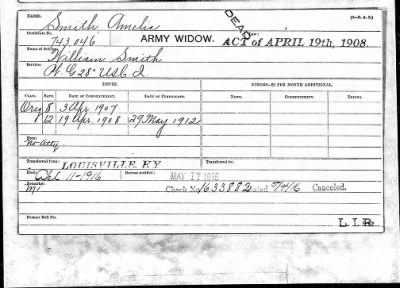 NAME: (3-2 A.)
Smith Amelia DEAD
Certificate No. 743,046 ARMY WIDOW. ACT of APRIL 19th, 1908.
Name of Soldier:
William Smith
Service:
28" USC I
ISSUES. MINORS—$2 PER MONTH ADDITIONAL.
CLASS. RATE. DATE OF COMMENCEMENT. DATE OF CERTIFICATE. NAME. COMMENCEMENT. EXPIRATION.
Orig 8 3 Apr 1907
12 19 Apr 1908 29 May 1912
No atty
Transferred from: Transferred to:
LOUISVILLE, KY
Died: 11-1916 Bureau notified: MAY 17 1916
Remarks: Check No. 1633882 Dated 5/4/16 Canceled.
Former Roll No. L. I. B.